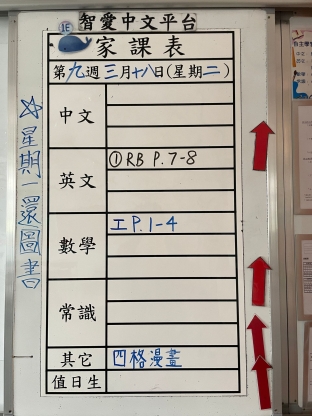 智愛中文平台
1E
家課表
第九週三月十八日(星期二)
中文
英文
①RB P.7-8
數學
工P.1-4
常識
其它
四格漫畫
值日生
☆星期一還圖書